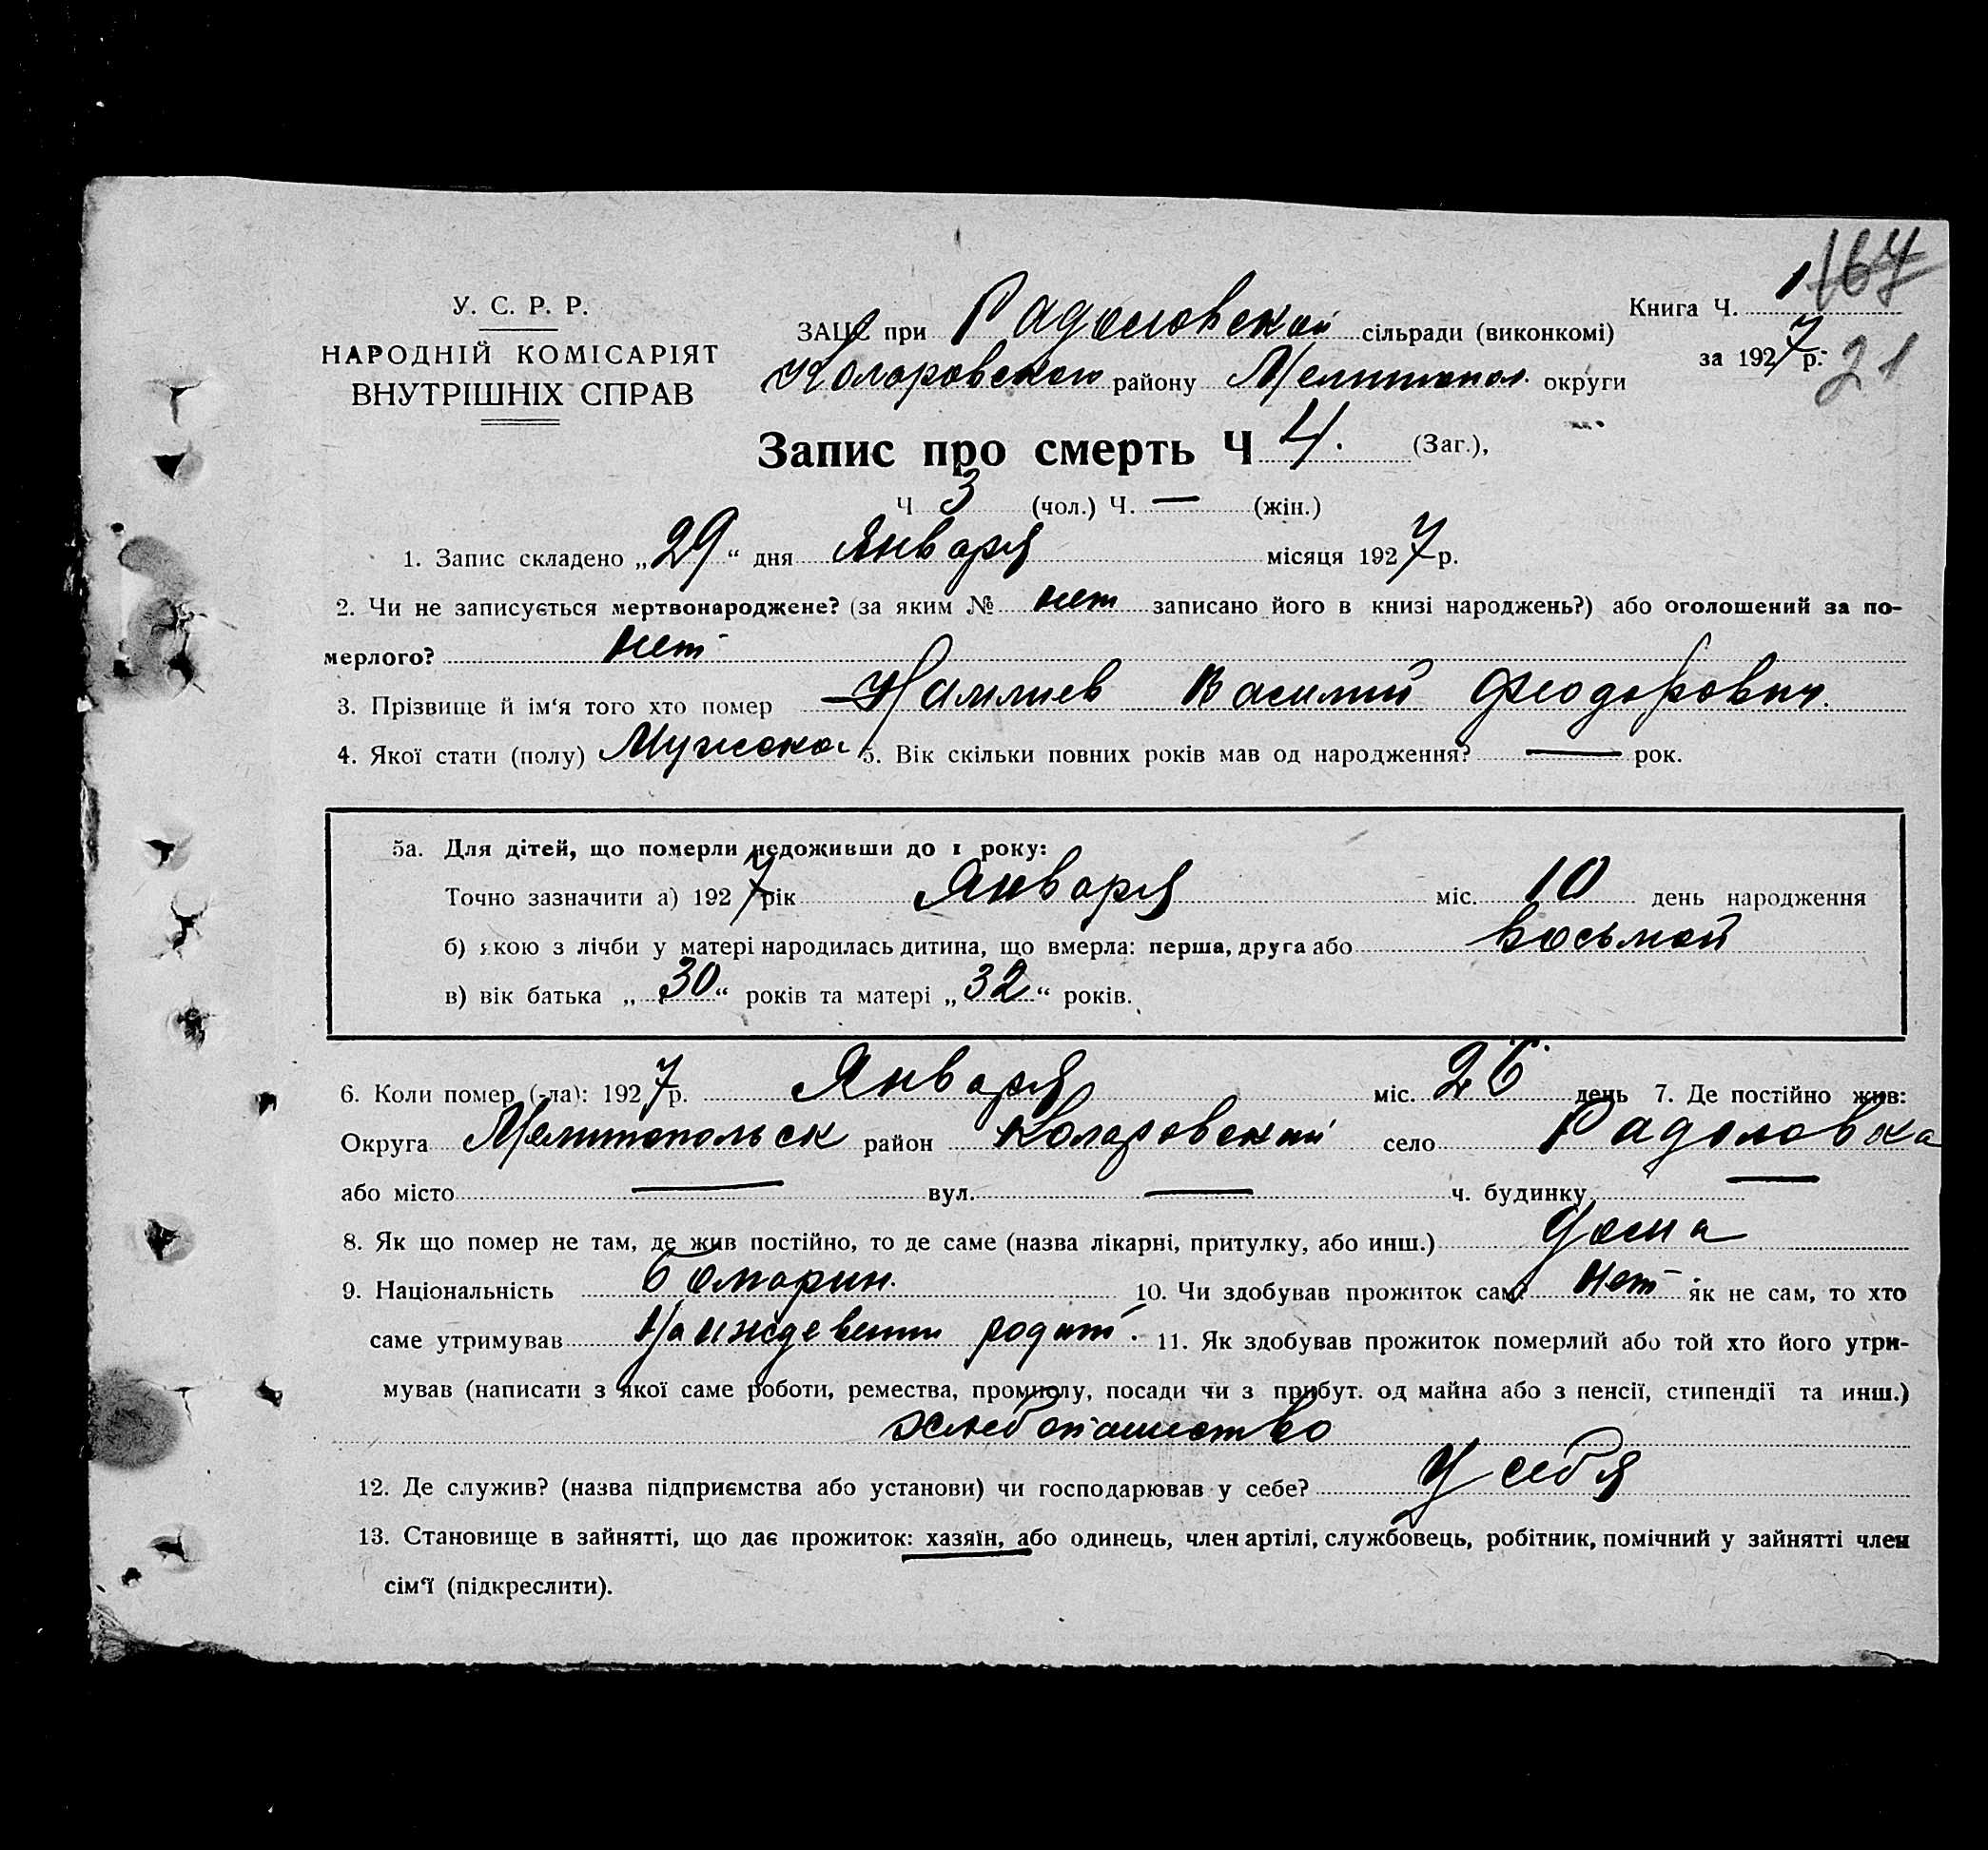 167
У. С. Р. Р.
НАРОДНІЙ КОМІСАРІЯТ
ВНУТРІШНІХ СПРАВ
ЗАЦС при Радоловской сільради (виконкомі)
Коларовского району Мелитопол. округи
Книга Ч. 1
за 1927 р.
21
Запис про смерть Ч 4. (Заг.),
Ч 3 (чол.) Ч. — (жін.)
1. Запис складено „29“ дня Января місяця 1927 р.
2. Чи не записується мертвонароджене? (за яким № нет записано його в книзі народжень?) або оголошений за по-
мерлого? нет
3. Прізвище й ім‘я того хто помер Василий Феодорович.
4. Якої стати (полу) Мужской 5. Вік скільки повних років мав од народження? — рок.
5а. Для дітей, що померли недоживши до 1 року:
Точно зазначити а) 1927 рік Января міс. 10 день народження
б) якою з лічби у матері народилась дитина, що вмерла: перша, друга або восьмой
в) вік батька „30“ років та матері „32“ років.
6. Коли помер (-ла): 1927 р. Января міс. 26 день 7. Де постійно жив:
Округа Мелитопольск район Коларовский село Радоловка
або місто — вул. — ч. будинку —
8. Як що помер не там, де жив постійно, то де саме (назва лікарні, притулку, або инш.) дома
9. Національність Болгарин. 10. Чи здобував прожиток сам? нет як не сам, то хто
саме утримував На иждевении родит. 11. Як здобував прожиток померлий або той хто його утри-
мував (написати з якої саме роботи, ремества, промислу, посади чи з прибут. од майна або з пенсії, стипендії та инш.)
хлебопашество
12. Де служив? (назва підприємства або установи) чи господарював у себе? У себя
13. Становище в зайнятті, що дає прожиток: хазяїн, або одинець, член артілі, службовець, робітник, помічний у зайнятті член
сім‘ї (підкреслити).